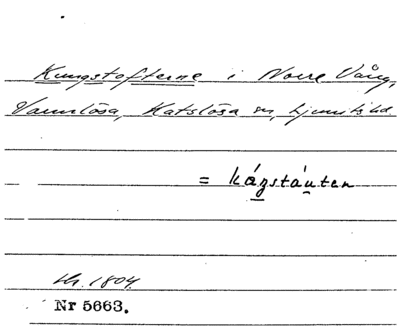 Kungstofterne i Norre Vång,
Vannlösa, Katslösa sn, Ljunits hd
= kágstáuten
1804.
Nr 5663.